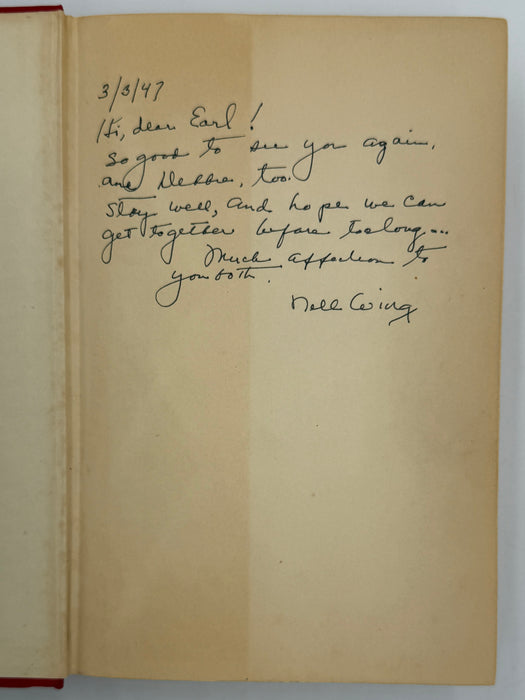 3/3/47
Hi, dear Earl!
So good to see you again,
and Debbie, too.
Stay well, and hope we can
get together before too long...
Much affection to
you both.
Nell Wing